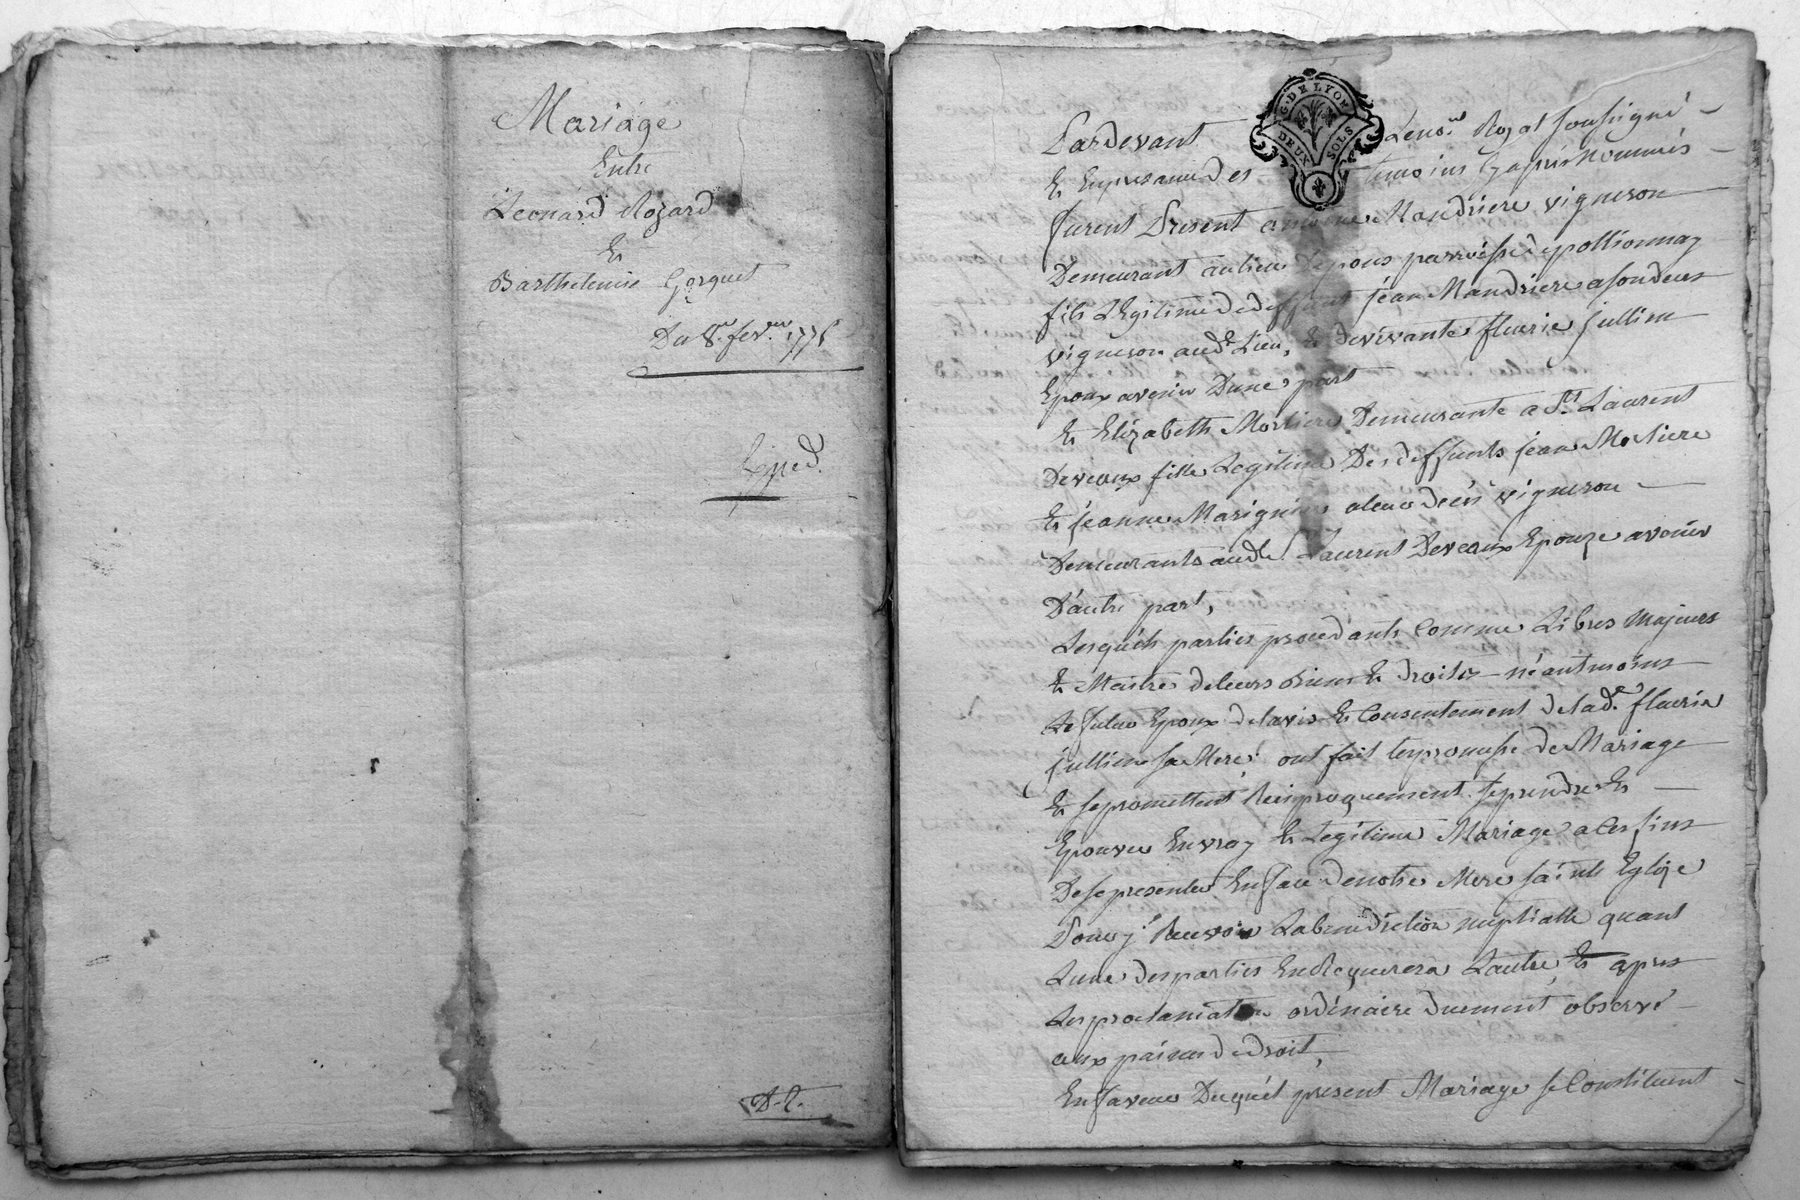 Mariage
Entre
Leonard Rozard
Et
Barthelemie Gorguet
Du 8.e fev.er 1775
Exped.
D-2.
G. DE LYON
DEUX SOLS
Pardevant Le no.re Royal soussigné
Et En presance des temoins Cy apres Nommés
furent Present antoine Mandriere vigneron
Demeurant au lieu de pons parroisse de pollionnay
fils Legitime de deffunt jean Mandriere a son deces
vigneron aud.t Lieu, Et de vivante fleurie jullien
Epoux avenir D'une part
Et Elizabeth Morliere Demeurante a S.t Laurent
De veaux fille Legitime Des deffunts jean Morliere
Et jeanne Marignier a leur décés vigneron
Demeurants aud.t S.t Laurent De veaux Epouze avenir
D'autre part,
Lesquels parties procedants Comme Libres Majeurs
Et Maistres de leurs Biens Et Droits néantmoins
Le futur Epoux de lavis Et Consentement de lad.e fleurie
jullien sa Mere ont fait les promesse de Mariage
Et se promettent Reciproquement se prendre Et
Epouser En vray Et Legitime Mariage a Ces fins
De se presenter En face de notre Mere sainte Eglize
Pour y Recevoir La benediction nuptialle quant
L'une des parties En Requerera L'autre Et apres
Les proclamation ordinaire duement observé
aux peines de droit,
En faveur Duquél présent Mariage se Constituent